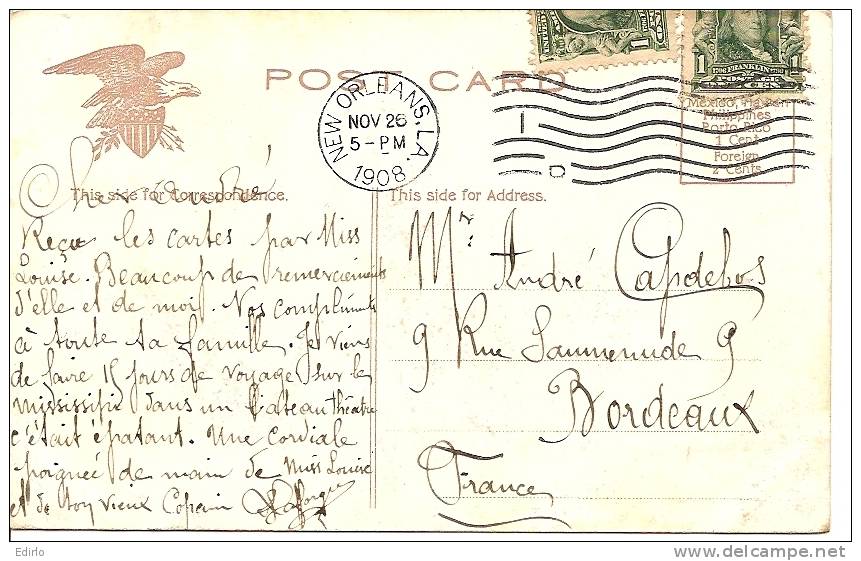 POST CARD
NEW ORLEANS, LA.
NOV 26
5-PM
1908
1
1
1706 FRANKLIN 1790
POSTAGE
Mexico,
Philippines
Porto Rico
1 Cent
Foreign
2 Cents
This side for Correspondence.
This side for Address.
Cher André
Reçu les cartes par Miss
Louise. Beaucoup de remerciements
d'elle et de moi. Nos compliments
à toute ta famille. Je viens
de faire 15 jours de voyage sur le
Mississipi dans un bateau théâtre
c'était épatant. Une cordiale
poignée de main de Miss Louise
et de ton vieux Copain
Mr: André Capdebos
9 Rue 9
Bordeaux
France
Edirlo
delcampe.net